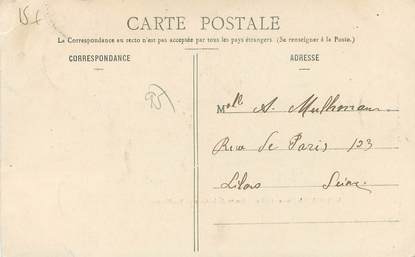 CARTE POSTALE
La Correspondance au recto n'est pas acceptée par tous les pays étrangers (Se renseigner à la Poste.)
CORRESPONDANCE
ADRESSE
Mlle A.
Rue de Paris 123
Lilas Seine